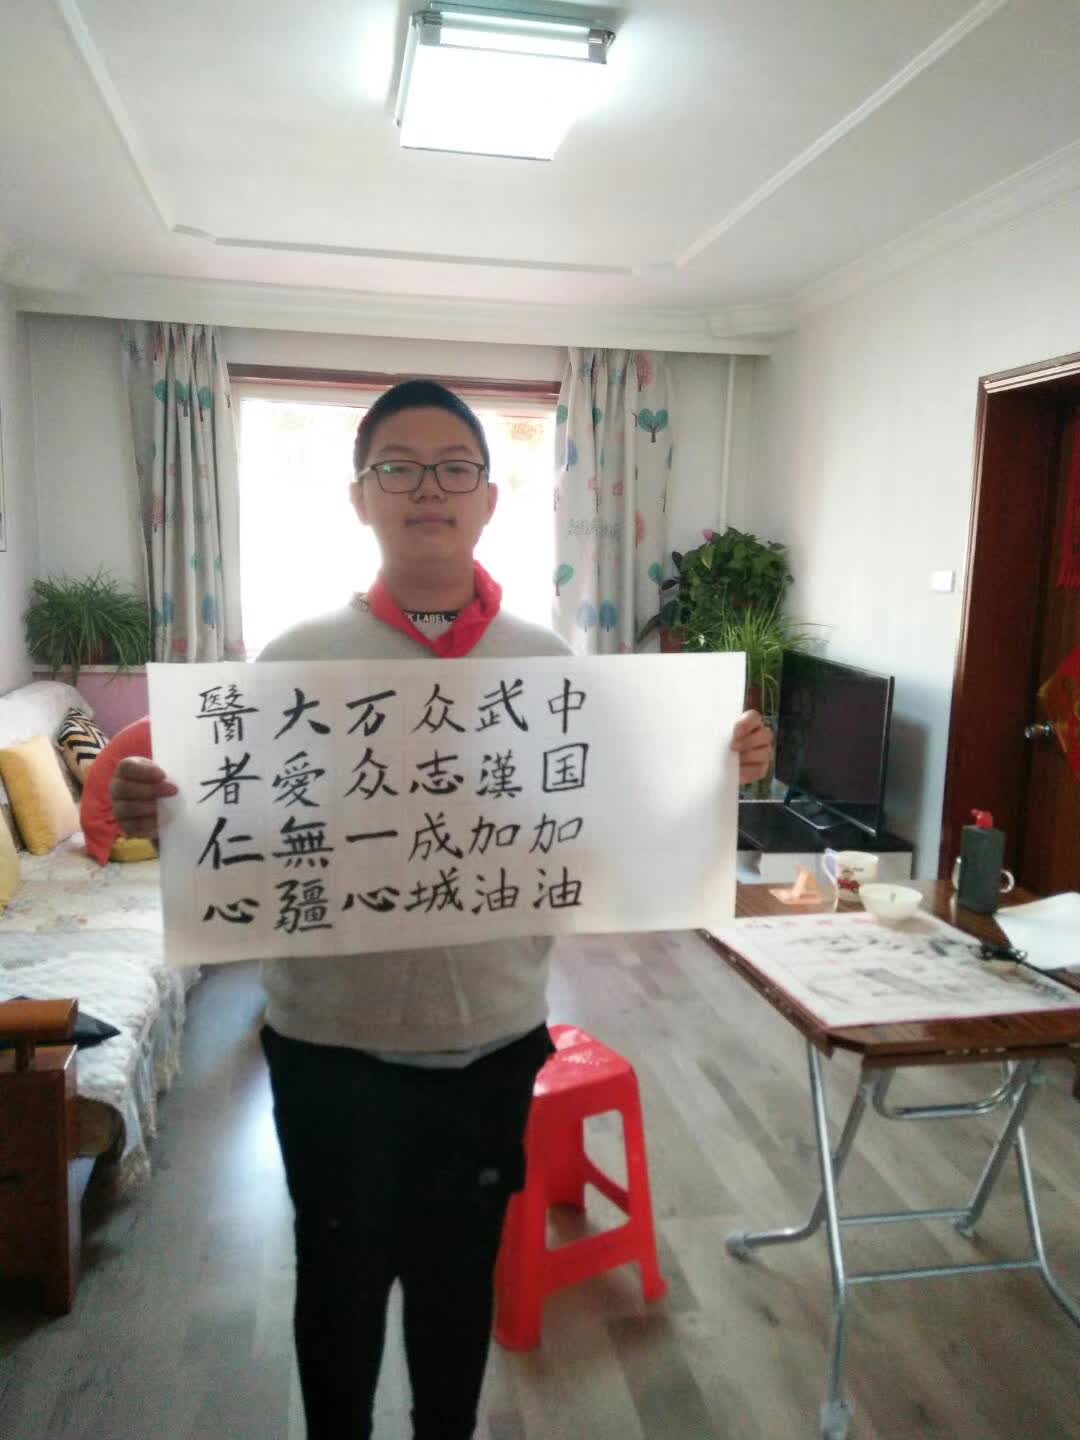 中国加油
武漢加油
众志成城
万众一心
大愛無疆
醫者仁心
K LABEL